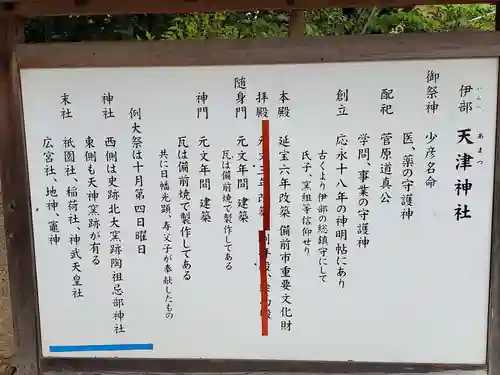 伊部 天津神社
いんべ あまつ
御祭神 少彦名命
医、薬の守護神
配祀 菅原道真公
学問、事業の守護神
創立 応永十八年の神明帖にあり
古くより伊部の総鎮守にして
氏子、窯組等信仰せり
本殿 延宝六年改築 備前市重要文化財
拝殿
随身門 元文年間 建築
瓦は備前焼で製作してある
神門 元文年間 建築
瓦は備前焼で製作してある
共に日幡光顕、寿父子が奉献したもの
例大祭は十月第四日曜日
神社 西側は史跡北大窯跡陶祖忌部神社
東側も天神窯跡が有る
末社 祇園社、稲荷社、神武天皇社
広宮社、地神、竈神